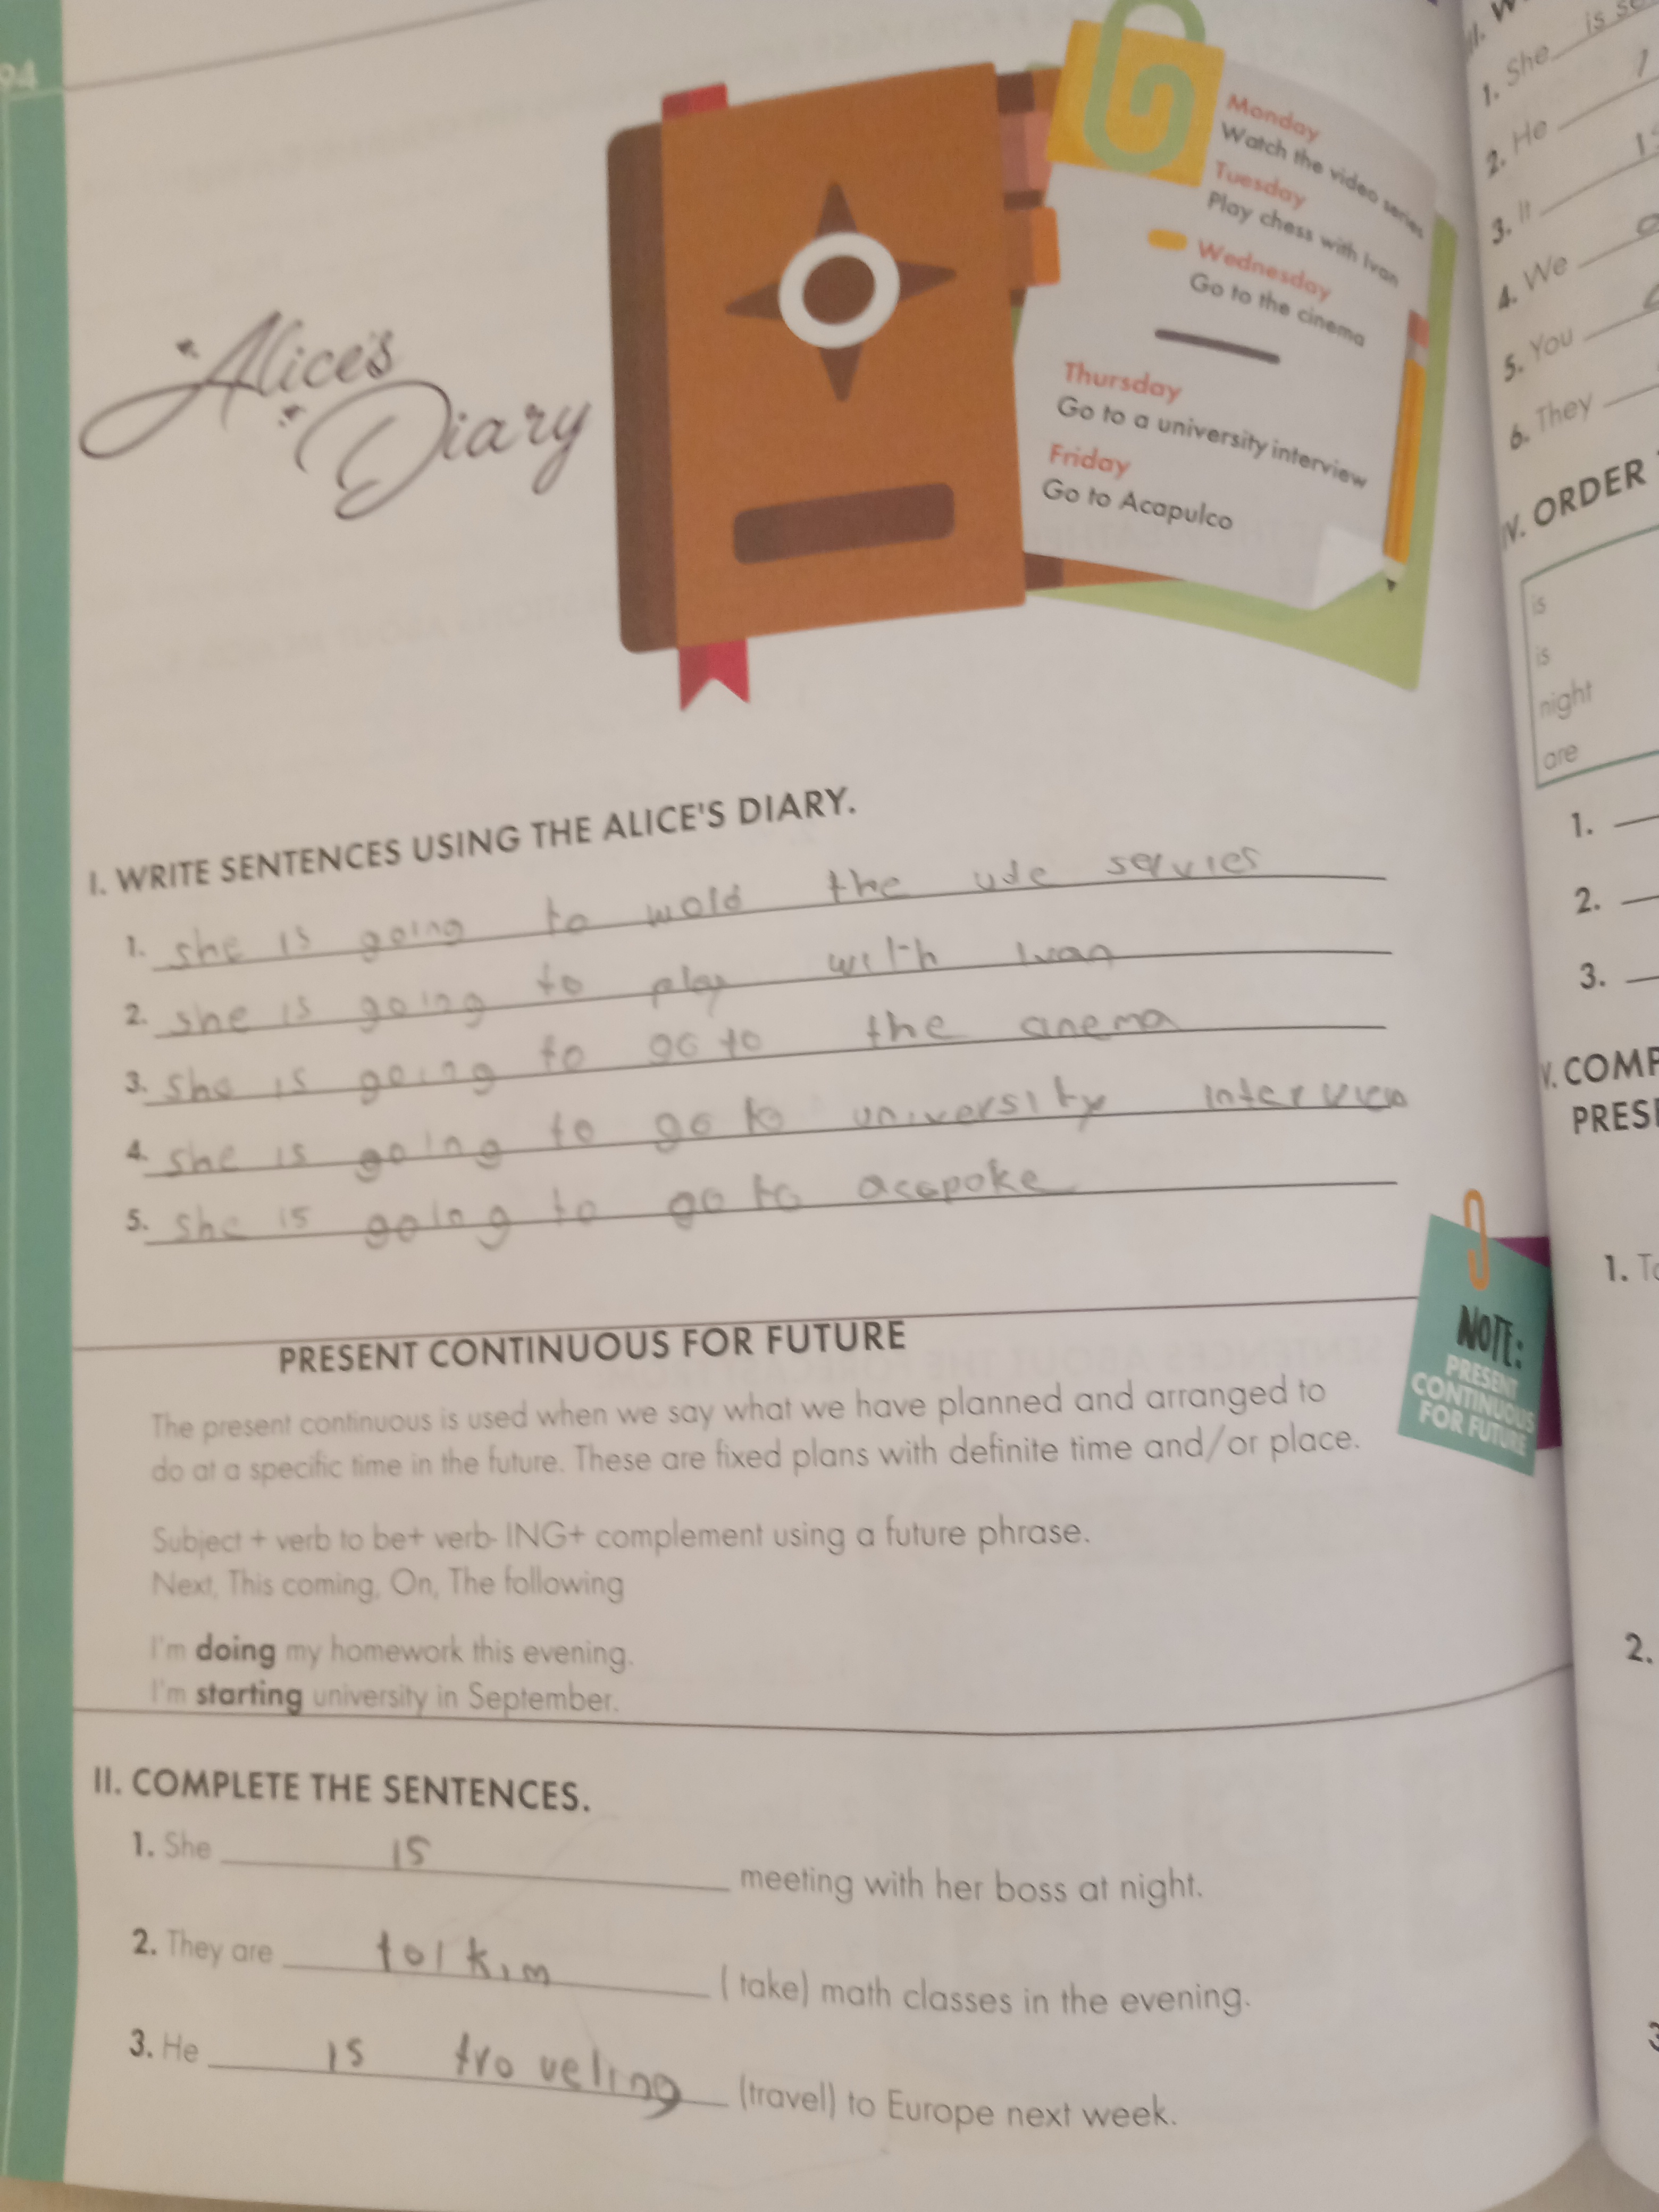 94
Alice's
Diary
Monday
Watch the video series
Tuesday
Play chess with Ivan
Wednesday
Go to the cinema
Thursday
Go to a university interview
Friday
Go to Acapulco
I. WRITE SENTENCES USING THE ALICE'S DIARY.
1. she is going to the
2. she is going to play with Ivan
3. she is going to go to the cinema
4. she is going to go to university interview
5. she is going to go to acapoke
PRESENT CONTINUOUS FOR FUTURE
The present continuous is used when we say what we have planned and arranged to
do at a specific time in the future. These are fixed plans with definite time and/or place.
Subject + verb to be+ verb- ING+ complement using a future phrase.
Next, This coming, On, The following
I'm doing my homework this evening.
I'm starting university in September.
NOTE:
PRESENT
CONTINUOUS
FOR FUTURE
II. COMPLETE THE SENTENCES.
1. She is meeting with her boss at night.
2. They are tolkim ( take) math classes in the evening.
3. He is troveling (travel) to Europe next week.
1. She is
2. He
3. It
4. We
5. You
6. They
IV. ORDER
is
is
night
are
1.
2.
3.
V.
1.
2.